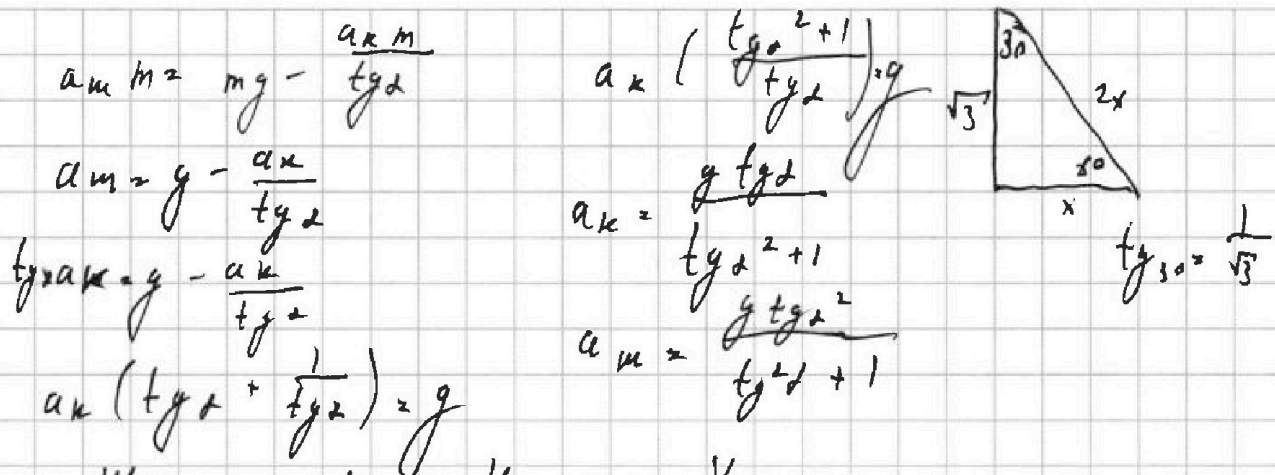 a_m m = mg - \frac{a_к m}{tg α}
a_m = g - \frac{a_к}{tg α}
tg α a_к = g - \frac{a_к}{tg α}
a_к ( tg α + \frac{1}{tg α} ) = g
a_к ( \frac{tg α^2 + 1}{tg α} ) = g
a_к = \frac{g tg α}{tg α^2 + 1}
a_m = \frac{g tg α^2}{tg^2 α + 1}
30
√3
2x
60
x
tg 30 = \frac{1}{√3}